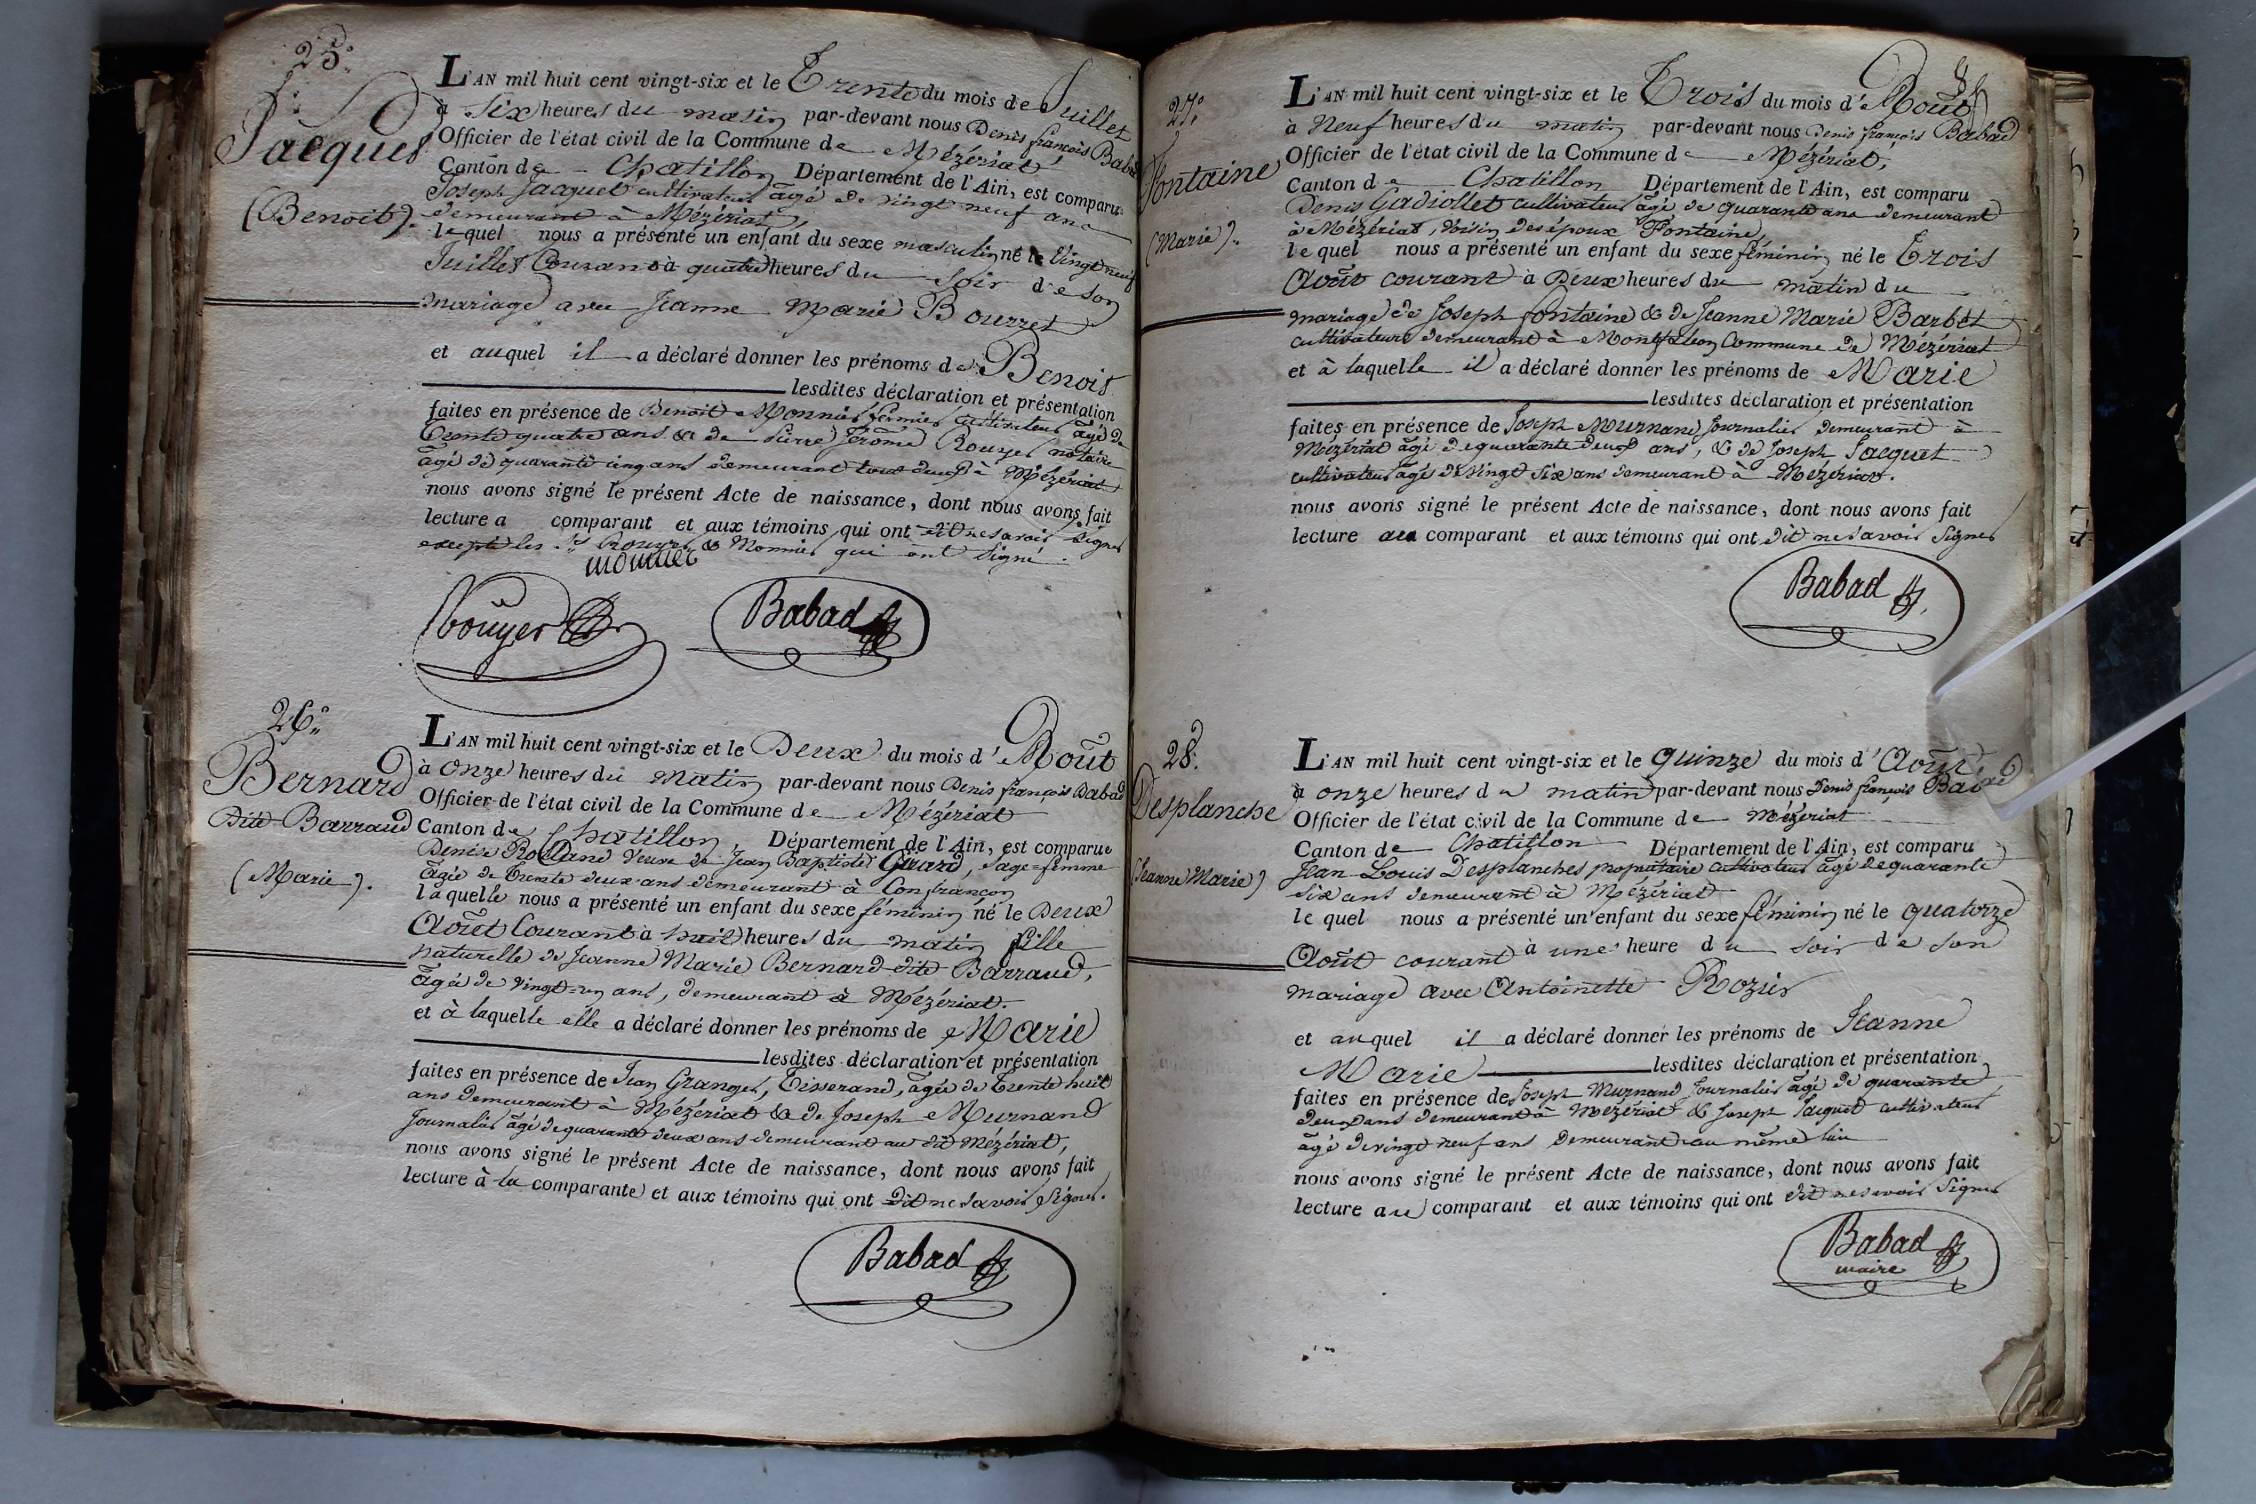 25.°
Jacquet
(Benoit).
L'AN mil huit cent vingt-six et le Trente du mois de Juillet
à Six heures du matin par-devant nous Denis françois Babad
Officier de l'état civil de la Commune de Mézériat
Canton de Chatillon Département de l'Ain, est comparu
Joseph Jacquet cultivateur âgé de vingt neuf ans
demeurant à Mézériat,
lequel nous a présenté un enfant du sexe masculin né le Vingt neuf
Juillet Courant à quatre heures du soir de son
mariage avec Jeanne Marie Bourret
et auquel il a déclaré donner les prénoms de Benoit
lesdites déclaration et présentation
faites en présence de Benoit Monnier fermier cultivateur âgé de
Trente quatre ans & de Pierre Jérome Rouyer notaire
âgé de quarante cinq ans demeurant tous deux à Mézériat
nous avons signé le présent Acte de naissance, dont nous avons fait
lecture a comparant et aux témoins qui ont dit ne savoir signer
excepté les Srs Rouyer & Monnier qui ont signé.
monnier
Rouyer Babad
26.°
Bernard
dite Barraud
(Marie).
L'AN mil huit cent vingt-six et le Deux du mois d'Août
à onze heures du Matin par-devant nous Denis françois Babad
Officier de l'état civil de la Commune de Mézériat
Canton de Chatillon, Département de l'Ain, est comparue
Denise Rolland veuve de Jean Baptiste Girard, sage-femme
âgée de Trente deux ans demeurant à Confrançon
laquelle nous a présenté un enfant du sexe féminin né le Deux
Août Courant à huit heures du matin fille
naturelle de Jeanne Marie Bernard dite Barraud,
âgée de vingt-un ans, demeurant à Mézériat.
et à laquelle elle a déclaré donner les prénoms de Marie
lesdites déclaration et présentation
faites en présence de Jean Granger, Tisserand, âgé de Trente huit
ans demeurant à Mézériat & de Joseph Murnand
Journalier âgé de quarante deux ans demeurant au dit Mézériat,
nous avons signé le présent Acte de naissance, dont nous avons fait
lecture à la comparante et aux témoins qui ont dit ne savoir signer.
Babad
27.°
Fontaine
(Marie).
L'AN mil huit cent vingt-six et le Trois du mois d'Août
à Neuf heures du matin par-devant nous Denis françois Babad
Officier de l'état civil de la Commune de Mézériat,
Canton de Chatillon Département de l'Ain, est comparu
Denis Gadiollet cultivateur âgé de quarante ans demeurant
à Mézériat, voisin des époux Fontaine,
lequel nous a présenté un enfant du sexe féminin né le Trois
Août courant à Deux heures du matin du
mariage de Joseph fontaine & de Jeanne Marie Barbet
cultivateurs demeurant à Montfaleon Commune de Mézériat
et à laquelle il a déclaré donner les prénoms de Marie
lesdites déclaration et présentation
faites en présence de Joseph Murnand Journalier demeurant à
Mézériat âgé de quarante deux ans, & de Joseph Jacquet
cultivateur âgé de vingt six ans demeurant à Mézériat.
nous avons signé le présent Acte de naissance, dont nous avons fait
lecture au comparant et aux témoins qui ont dit ne savoir signer
Babad
28.
Desplanche
(Jeanne Marie)
L'AN mil huit cent vingt-six et le quinze du mois d'Août
à onze heures du matin par-devant nous Denis françois Babad
Officier de l'état civil de la Commune de Mézériat
Canton de Chatillon Département de l'Ain, est comparu
Jean Louis Desplanches propriétaire cultivateur âgé de quarante
six ans demeurant à Mézériat
lequel nous a présenté un enfant du sexe féminin né le quatorze
Août courant à une heure du soir de son
mariage avec Antoinette Rozier
et auquel il a déclaré donner les prénoms de Jeanne
Marie lesdites déclaration et présentation
faites en présence de Joseph Murnand Journalier âgé de quarante
deux ans demeurant à Mézériat & Joseph Jacquet cultivateur
âgé de vingt neuf ans demeurant au même lieu
nous avons signé le présent Acte de naissance, dont nous avons fait
lecture au comparant et aux témoins qui ont dit ne savoir signer
Babad
maire